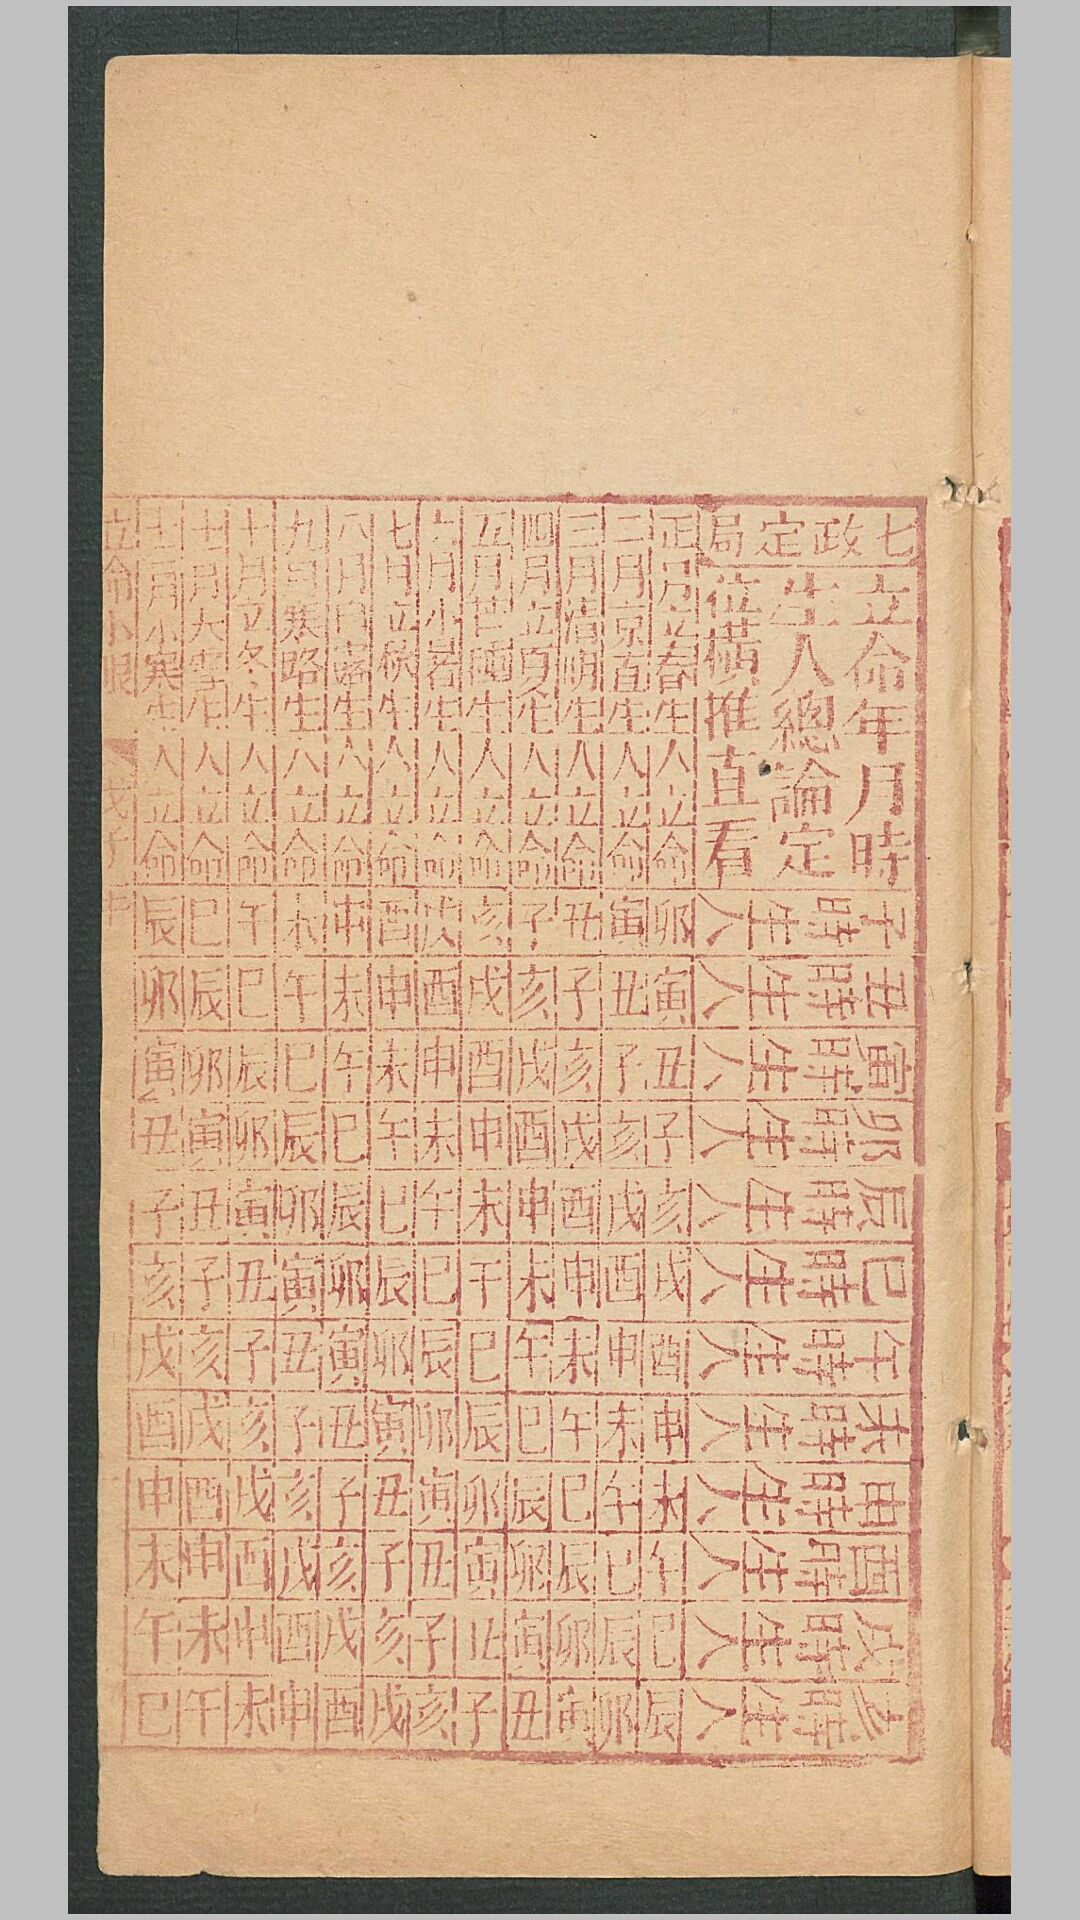 七政定局
立命年月時
生人總論定
位橫推直看
子時生人
丑時生人
寅時生人
卯時生人
辰時生人
巳時生人
午時生人
未時生人
申時生人
酉時生人
戌時生人
亥時生人
正月立春生人立命卯寅丑子亥戌酉申未午巳辰
二月京直生人立命寅丑子亥戌酉申未午巳辰卯
三月清明生人立命丑子亥戌酉申未午巳辰卯寅
四月立夏生人立命子亥戌酉申未午巳辰卯寅丑
五月芒種生人立命亥戌酉申未午巳辰卯寅丑子
六月小暑生人立命戌酉申未午巳辰卯寅丑子亥
七月立候生人立命酉申未午巳辰卯寅丑子亥戌
八月白露生人立命申未午巳辰卯寅丑子亥戌酉
九月寒路生人立命未午巳辰卯寅丑子亥戌酉申
十月立冬生人立命午巳辰卯寅丑子亥戌酉申未
十一月大雪生人立命巳辰卯寅丑子亥戌酉申未午
十二月小寒生人立命辰卯寅丑子亥戌酉申未午巳
立命小限